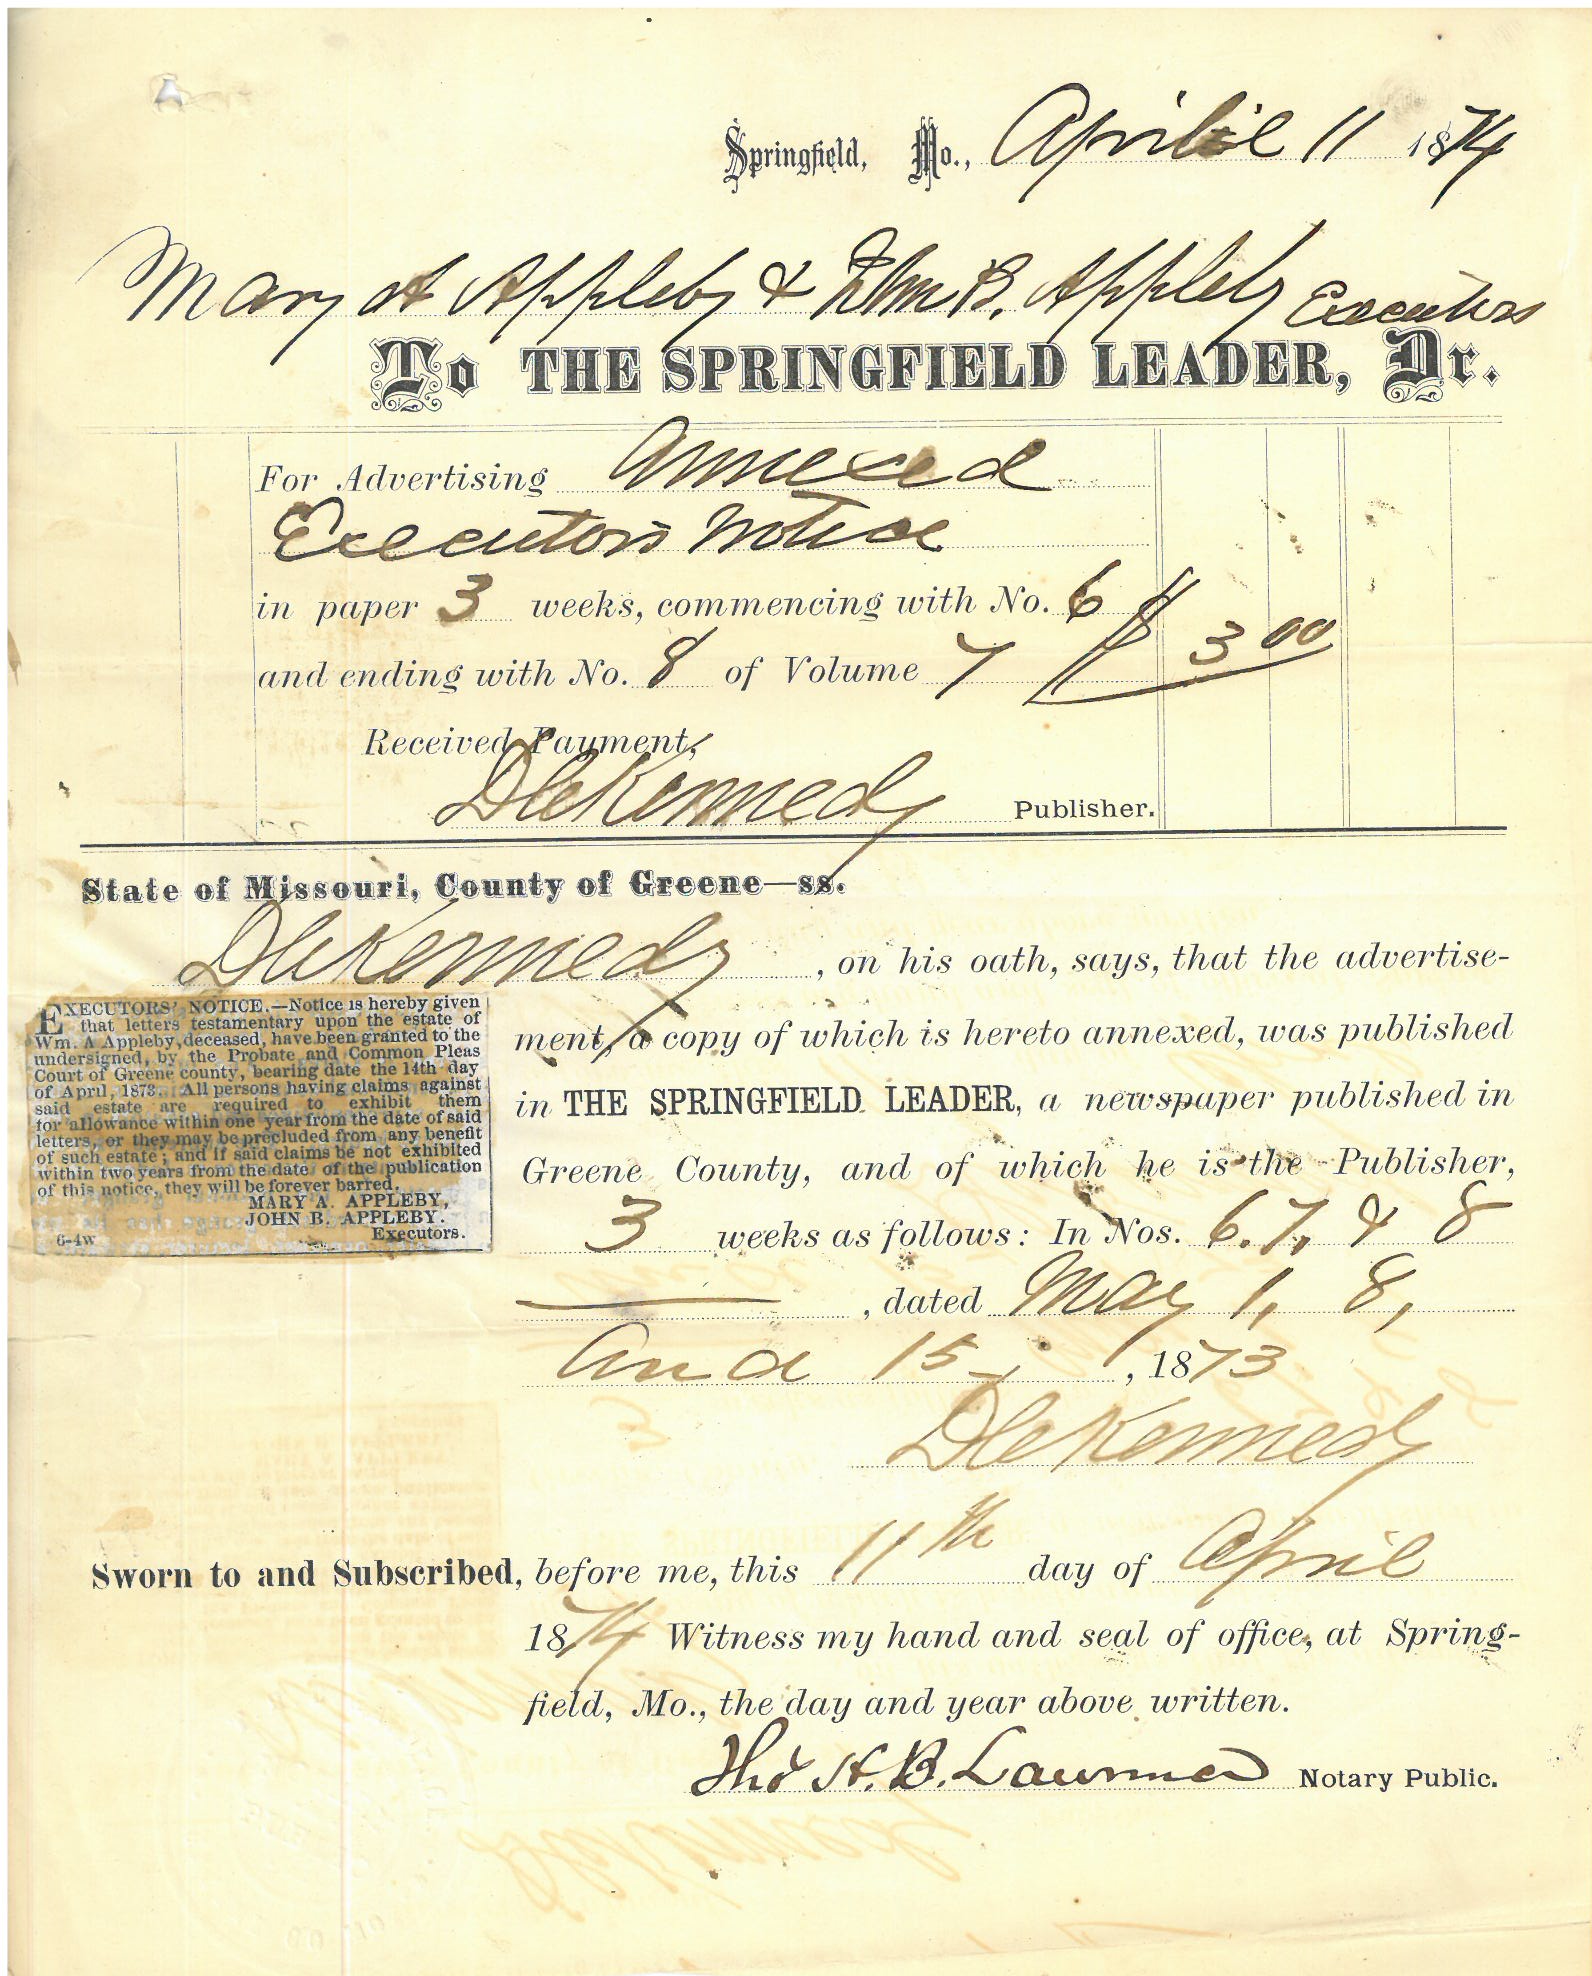 Springfield, Mo., April 11 1874
Mary A Appleby & John B. Appleby Executors
To THE SPRINGFIELD LEADER, Dr.
For Advertising annexed
Executors Notice
in paper 3 weeks, commencing with No. 6
and ending with No. 8 of Volume 7 $ 3 00
Received Payment,
D C Kennedy Publisher.
State of Missouri, County of Greene—ss.
D C Kennedy, on his oath, says, that the advertise-
ment, a copy of which is hereto annexed, was published
in THE SPRINGFIELD LEADER, a newspaper published in
Greene County, and of which he is the Publisher,
3 weeks as follows: In Nos. 6. 7, & 8
, dated May 1, 8,
and 15, 1873
D C Kennedy
EXECUTORS' NOTICE.—Notice is hereby given
that letters testamentary upon the estate of
Wm. A Appleby, deceased, have been granted to the
undersigned, by the Probate and Common Pleas
Court of Greene county, bearing date the 14th day
of April, 1873. All persons having claims against
said estate are required to exhibit them
for allowance within one year from the date of said
letters, or they may be precluded from any benefit
of such estate; and if said claims be not exhibited
within two years from the date of the publication
of this notice, they will be forever barred.
MARY A. APPLEBY,
JOHN B. APPLEBY.
6-4w Executors.
Sworn to and Subscribed, before me, this 11th day of April
1874 Witness my hand and seal of office, at Spring-
field, Mo., the day and year above written.
Thos H. B. Notary Public.